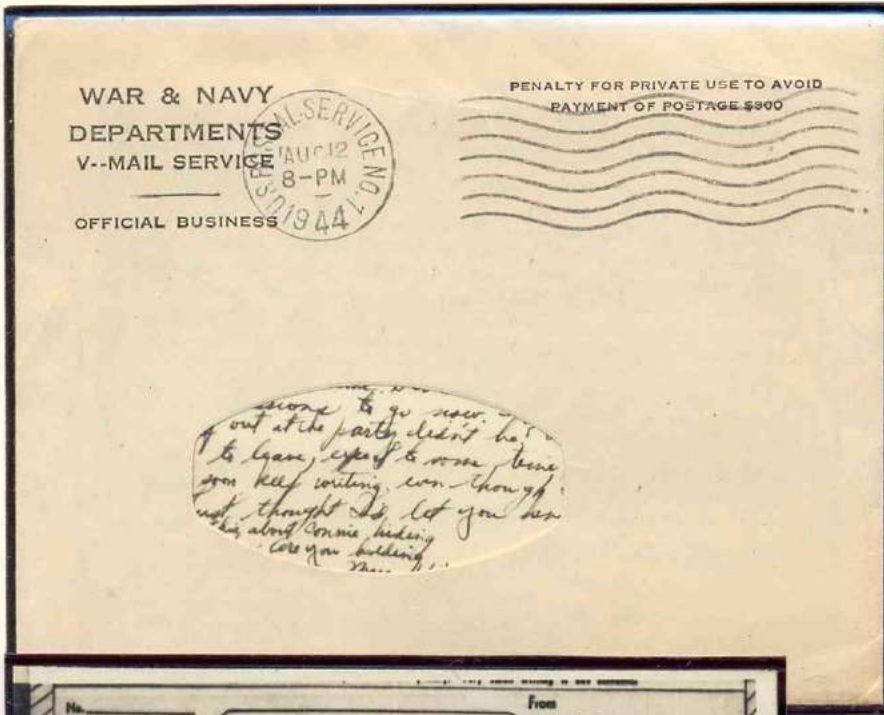 WAR & NAVY
DEPARTMENTS
V--MAIL SERVICE
OFFICIAL BUSINESS
U.S. POSTAL SERVICE NO. 1
AUG 12
8-PM
1944
PENALTY FOR PRIVATE USE TO AVOID
PAYMENT OF POSTAGE $300
to go now
out at the party didn't
to leave, expect to some time
soon keep writing, even though
thought I'd let you
about Connie hiding
are you holding
No.
From